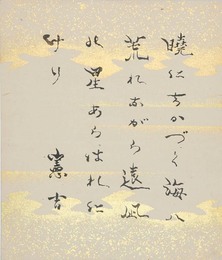 暁にちかづく海ハ
荒れながら遠凪
の星あらはれに
けり
憲吉